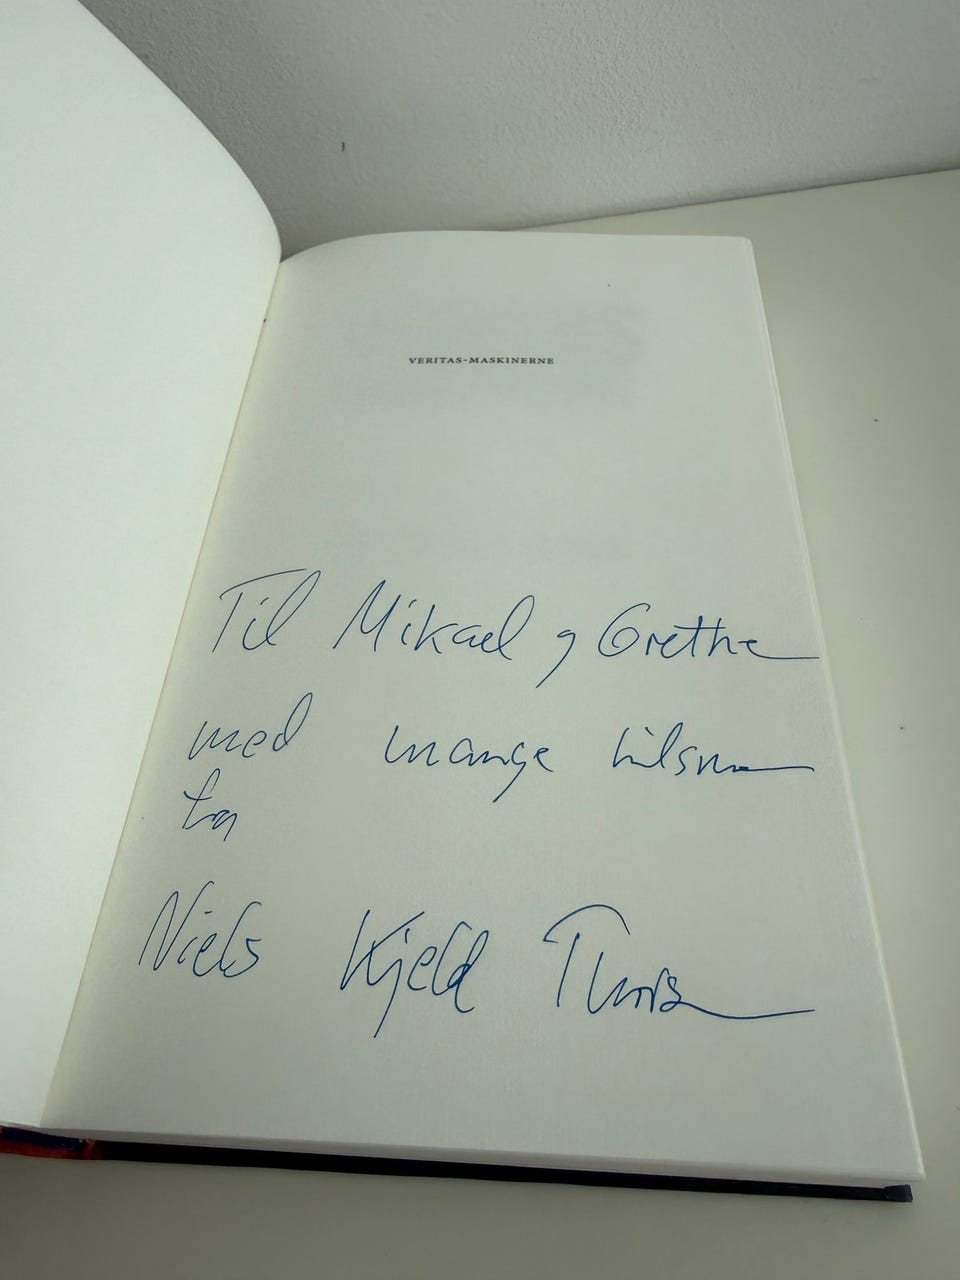 VERITAS-MASKINERNE
Til Mikael og Grethe
med mange hilsner
fra
Niels Kjeld